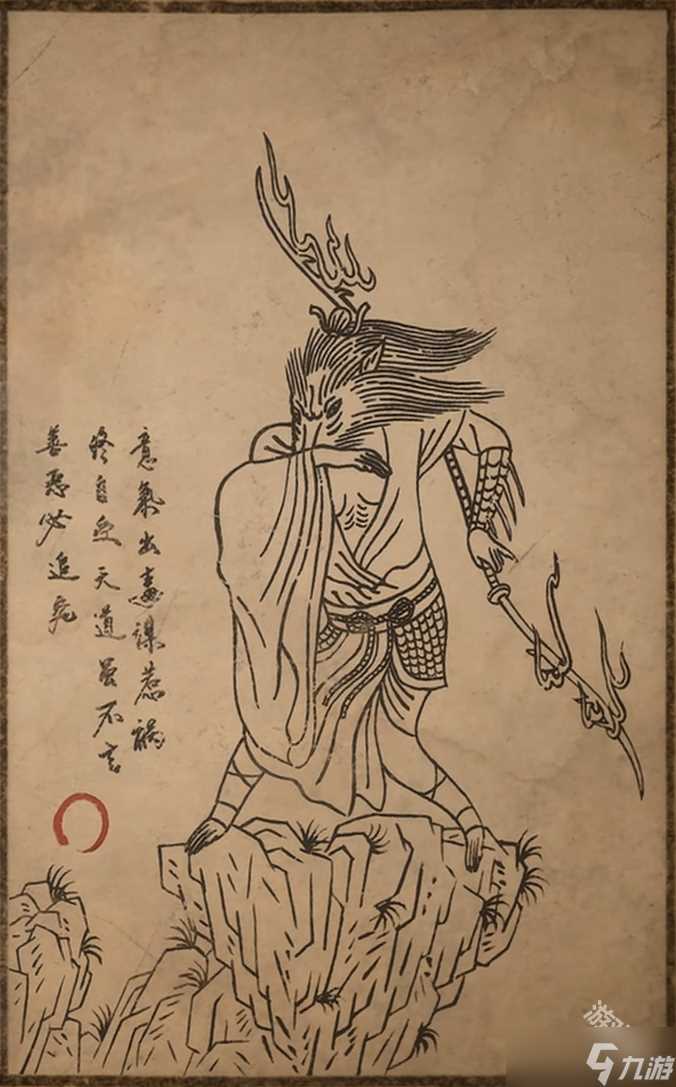 意氣出毒谋惹禍
终自受天道虽不言
善恶必追究
九游